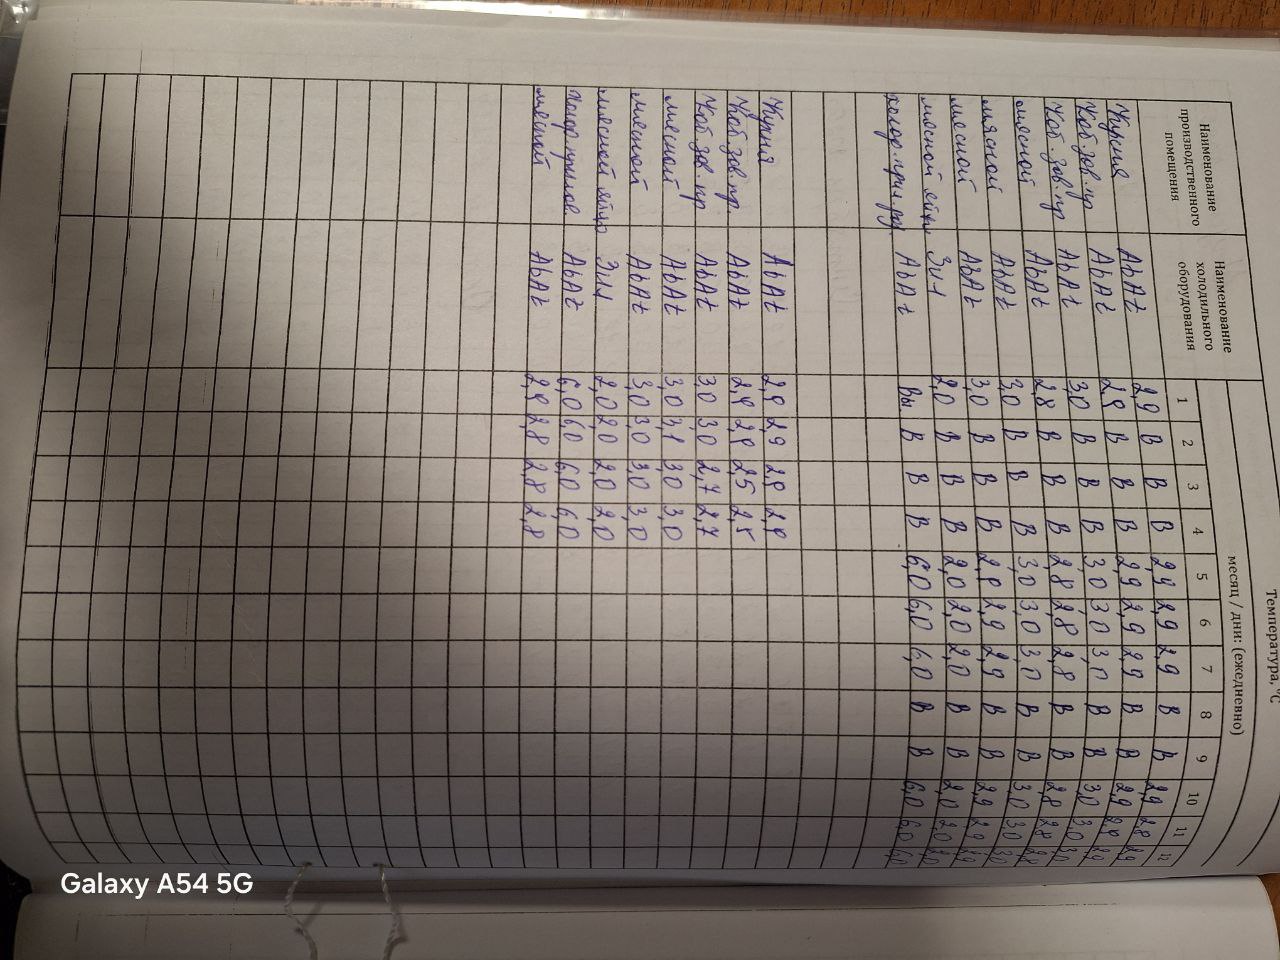 Температура, °С
Наименование производственного помещения
Наименование холодильного оборудования
месяц / дни: (ежедневно)
1 2 3 4 5 6 7 8 9 10 11 12
Кухня AbAt 2,9 В В В 2,9 2,9 2,9 В В 2,9 2,8 2,9
Коб. зав. пр AbAt 2,9 В В В 2,9 2,9 2,9 В В 2,9 2,8 2,9
Коб. зав. пр AbAt 3,0 В В В 3,0 3,0 3,0 В В 3,0 3,0 3,0
мясной AbAt 2,8 В В В 2,8 2,8 2,8 В В 2,8 2,8 2,8
мясной AbAt 3,0 В В В 3,0 3,0 3,0 В В 3,0 3,0 3,0
мясной AbAt 3,0 В В В 2,9 2,9 2,9 В В 2,9 2,9 2,9
мясной яйцо 2,0 В В В 2,0 2,0 2,0 В В 2,0 2,0 2,0
AbAt Вы В В В 6,0 6,0 6,0 В В 6,0 6,0 6,0
Кухня AbAt 2,9 2,9 2,9 2,9
Коб зав. пр. AbAt 2,9 2,9 2,5 2,5
Коб зав. пр AbAt 3,0 3,0 2,7 2,7
мясной AbAt 3,0 3,1 3,0 3,0
мясной AbAt 3,0 3,0 3,0 3,0
мясной яйцо 2,0 2,0 2,0 2,0
AbAt 6,0 6,0 6,0 6,0
мясной AbAt 2,9 2,8 2,8 2,8
Galaxy A54 5G